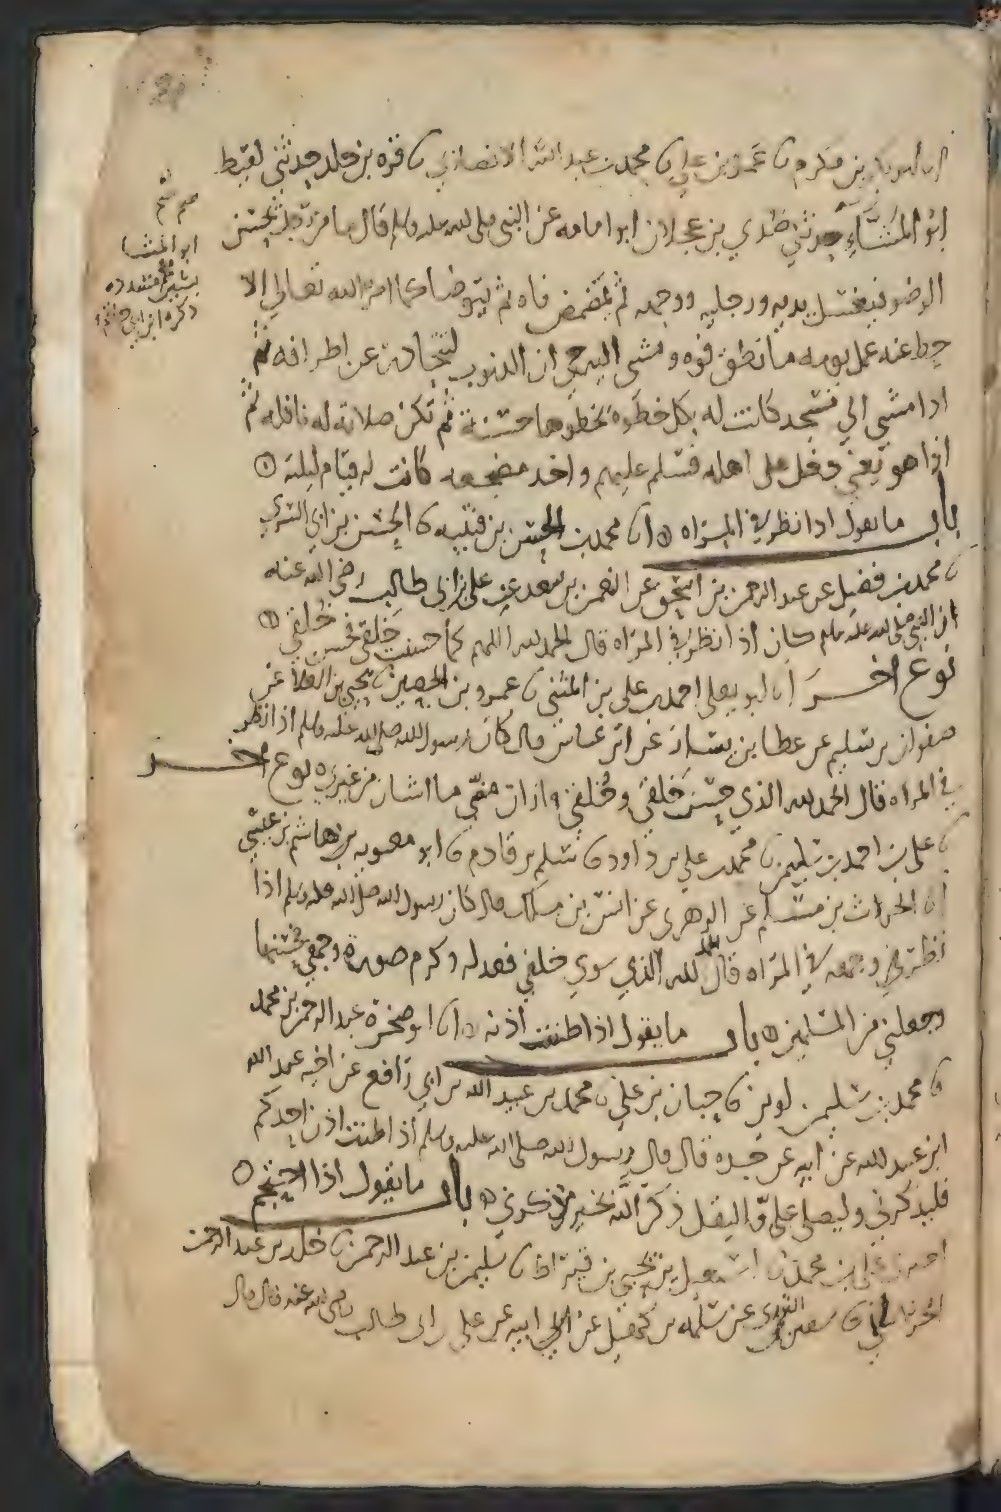 ابو بكر بن مكرم ن عمرو بن علي ن محمد بن عبد الله الانصاري ن قره بن خلد حدثني لقيط
ابو المشاء حدثني صدي بن عجلان ابو امامه عن النبي صلى الله عليه وسلم قال ما من رجل يحسن
الوضو فيغسل يديه ورجليه ووجهه ثم يمضمض فاه ثم يتوضا كما امر الله تعالى الا
حط عنه عمل يومه ما نطق فوه ومشى اليه حتى ان الذنوب لتتحادر عن اطرافه ثم
اذا مشى الي مسجد كانت له بكل خطوه يخطوها حسنة ثم تكن صلاته له نافله ثم
اذا هو يعني دخل على اهله فسلم عليهم واخذ مضجعه كانت له قيام ليلة
باب ما يقول اذا نظر في المراه ن محمد بن الحسن بن قتيبه ن الحسن بن ابي السري
ن محمد بن فضيل عن عبد الرحمن بن اسحق عن النعمن بن سعد عن علي بن ابي طالب رضي الله عنه
ان النبي صلى الله عليه وسلم كان اذا نظر في المراه قال الحمد لله اللهم كما حسنت خلقي فحسن خلقي
نوع اخر ابو يعلى احمد بن علي بن المثنى ن عمرو بن الحصين ن يحيى بن العلا عن
صفوان بن سليم عن عطا بن يسار عن ابن عباس قال كان رسول الله صلى الله عليه وسلم اذا نظر
في المراه قال الحمد لله الذي حسن خلقي وخلقي وزان مني ما اشان من غيري نوع اخر
ن علي بن احمد بن سليمن ن محمد بن علي بن داود ن سلم بن قادم ن ابو معويه بن هاشم بن عيسى
الحراث بن مسلم عن الزهري عن انس بن ملك قال كان رسول الله صلى الله عليه وسلم اذا
نظر في وجهه في المراه قال الحمد لله الذي سوى خلقي فعدله وكرم صورة وجهي فحسنها
وجعلني من المسلمين باب ما يقول اذا طنت اذنه ابو صخرة عبد الرحمن بن محمد
ن محمد بن سليمن لوين ن حبان بن علي ن محمد بن عبيد الله بن ابي رافع عن اخيه عبد الله
ابن عبيد الله عن ابيه عن جده قال قال رسول الله صلى الله عليه وسلم اذا طنت اذن احدكم
فليذكرني وليصلي علي واليقل ذكر الله بخير من ذكرني باب ما يقول اذا احتجم
علي بن محمد ن اسمعيل بن يحيى بن قيراط ن سليمن بن عبد الرحمن ن خلد بن عبد الرحمن
ن سفين الثوري عن سلمه بن كهيل عن ابيه عن علي بن ابي طالب رضي الله عنه قال قال
ابو المشا
ذكره ابن ابي حاتم